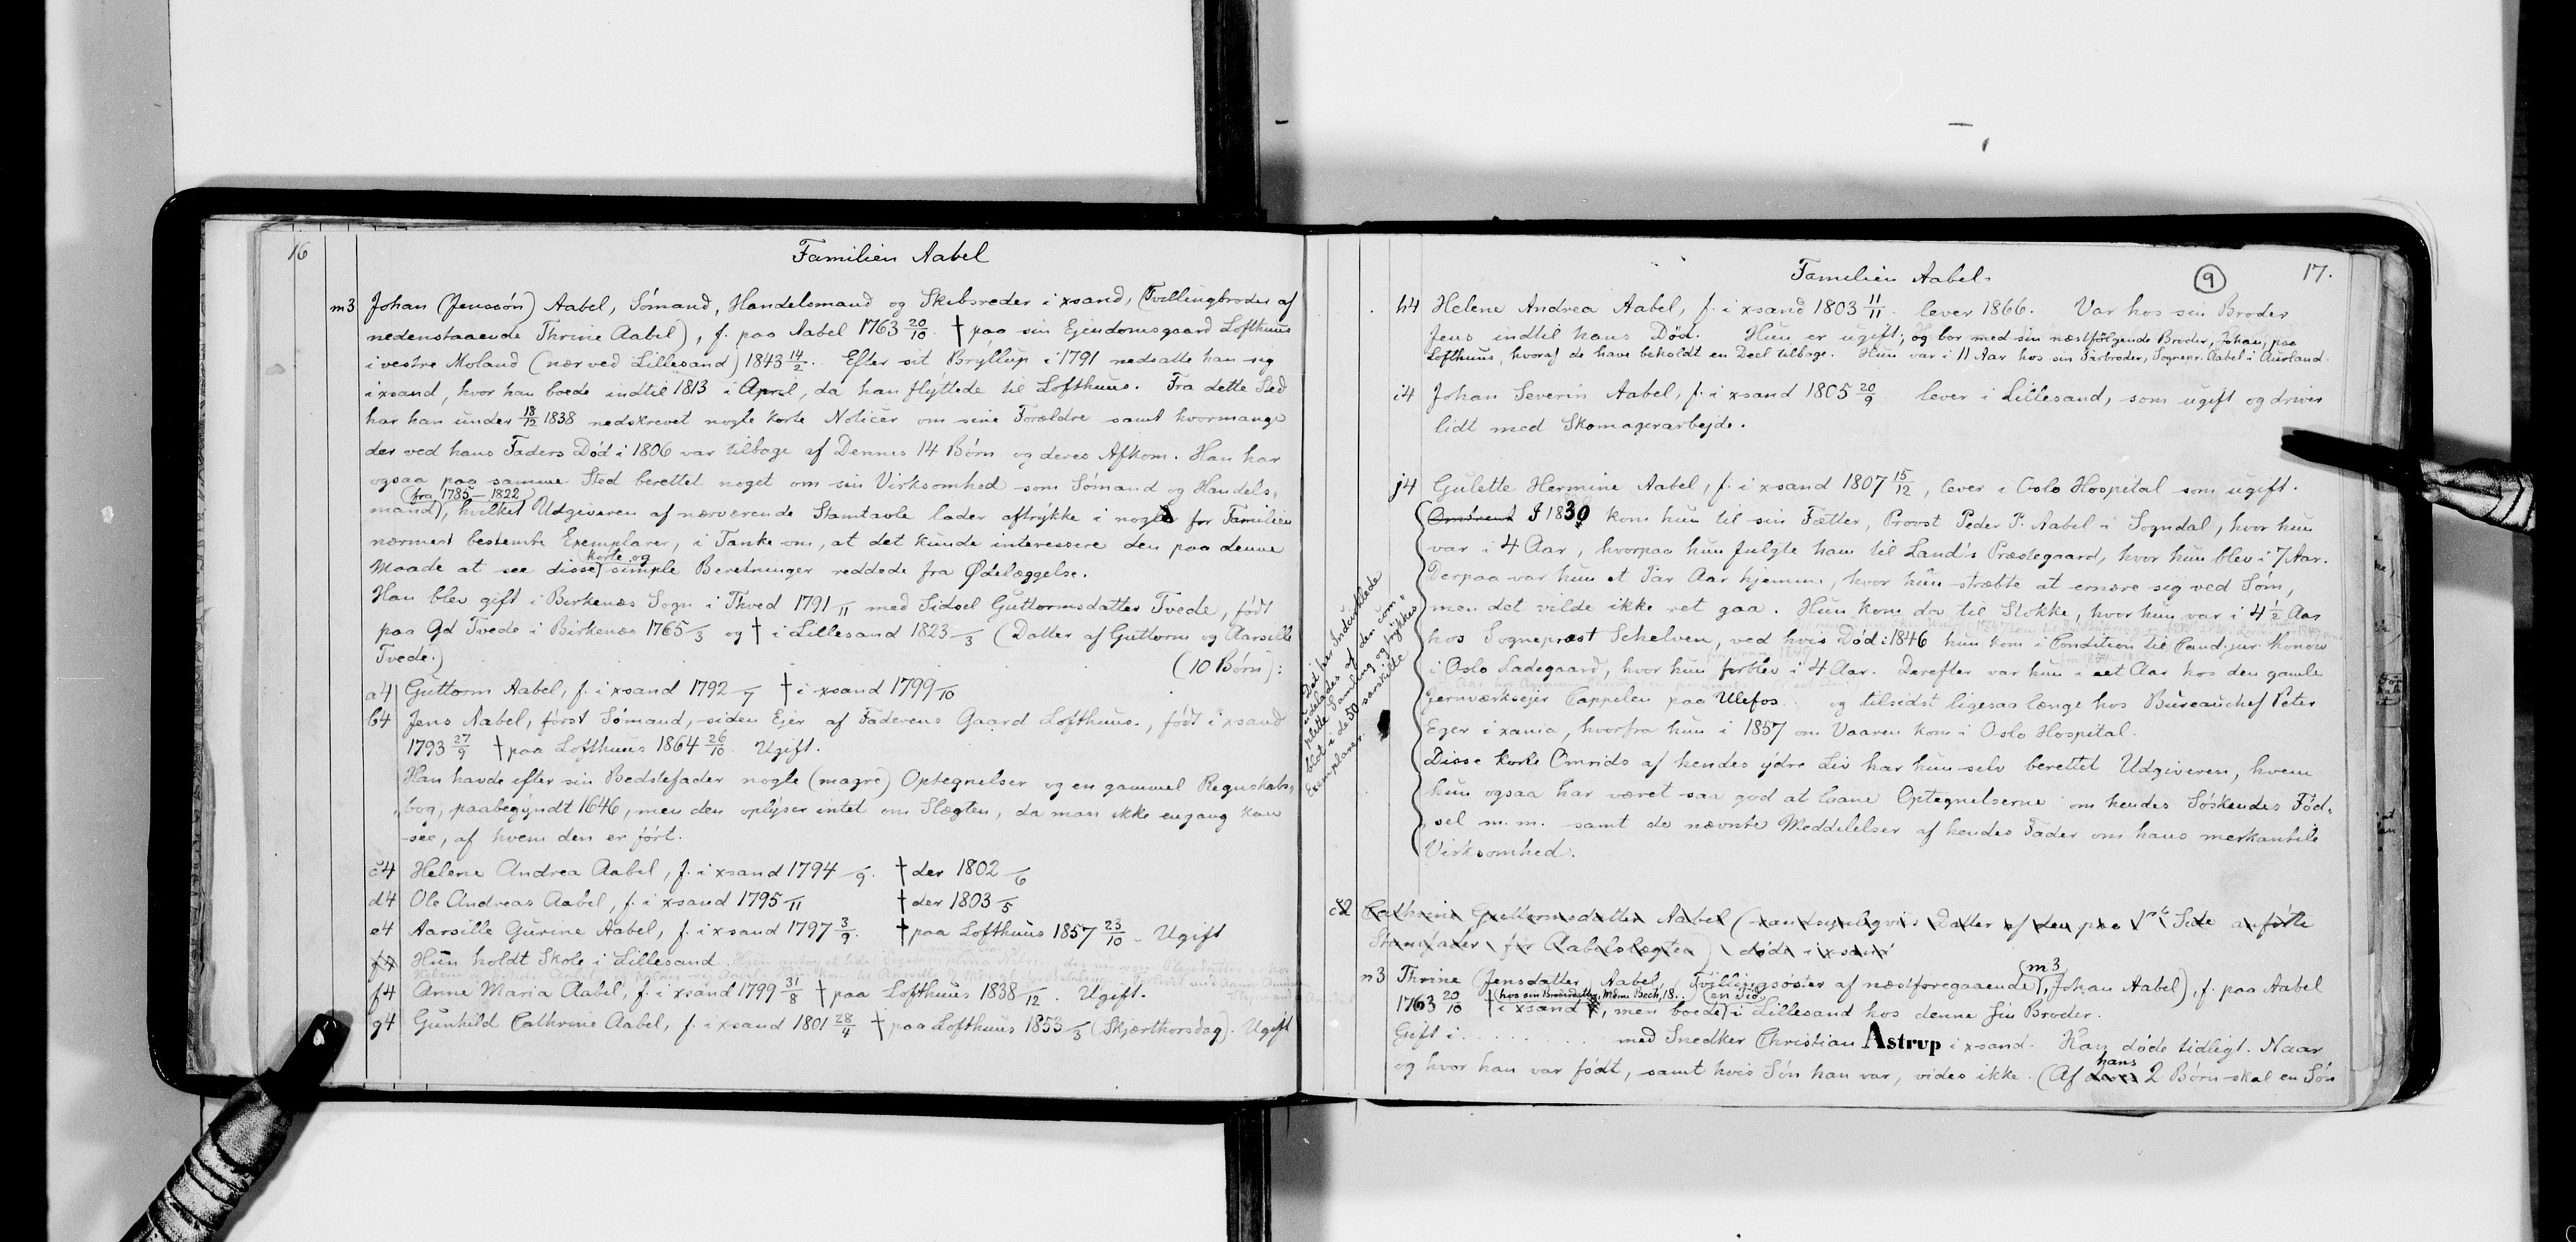 16
Familien Aabel
m3 Johan (Jenssön) Aabel, Sömand, Handelsmand og Skibsreder i xsand, (Tvillingbroder af
nedenstaaende Thrine Aabel), f. paa Aabel 1763 20/10. † paa sin Ejendomsgaard Lofthuus
i vestre Moland (nær ved Lillesand) 1843 14/2. Efter sit Bryllup i 1791 nedsatte han sig
i xsand, hvor han boede indtil 1813 i April, da han flyttede til Lofthuus. Fra dette Sted
har han under 18/12 1838 nedskrevet nogle korte Noticer om sine Forældre samt hvormange
der ved hans Faders Död i 1806 var tilbage af Dennes 14 Börn og deres Afkom. Han har
ogsaa paa samme Sted berettet noget om sin Virksomhed som Sömand og Handels-
(fra 1785–1822)
mand), hvilket Udgiveren af nærværende Stamtavle lader aftrykke i nogle for Familien
nærmest bestemte Exemplarer, i Tanke om, at det kunde interessere den paa denne
korte og
Maade at see disse simple Beretninger reddede fra Ødelæggelse.
Han blev gift i Berkenæs Sogn i Thved 1791 /11 med Sidsel Guttormsdatter Tvede, födt
paa Gd Tvede i Birkenæs 1765 /3 og † i Lillesand 1823 /3 (Datter af Guttorm og Aarsille
Tvede.) (10 Börn):
a4 Guttorm Aabel, f. i xsand 1792 /7 † i xsand 1799 /10
b4 Jens Aabel, först Sömand, siden Ejer af Faderens Gaard Lofthuus, födt i xsand
1793 27/9 † paa Lofthuus 1864 26/10. Ugift.
Han havde efter sin Bedstefader nogle (magre) Optegnelser og en gammel Regnskabs-
bog, paabegyndt 1646, men den oplyser intet om Slægten, da man ikke engang kan
see, af hvem den er fört.
c4 Helene Andrea Aabel, f. i xsand 1794 /9. † der 1802 /6
d4 Ole Andreas Aabel, f. i xsand 1795 /11 † der 1803 /5
e4 Aarsille Gurine Aabel, f. i xsand 1797 3/9. † paa Lofthuus 1857 23/10. Ugift
Hun holdt Skole i Lillesand.
f4 Anne Maria Aabel, f. i xsand 1799 31/8 † paa Lofthuus 1838 /12. Ugift.
g4 Gunhild Cathrine Aabel, f. i xsand 1801 28/4 † paa Lofthuus 1853 /3 (Skjærthorsdag). Ugift
Familien Aabel.
9
17.
h4 Helene Andrea Aabel, f. i xsand 1803 11/11. lever 1866. Var hos sin Broder
Jens indtil hans Död. Hun er ugift, og bor med sin næstfölgende Broder, Johan, paa
Lofthuus, hvoraf de have beholdt en Deel tilbage. Hun var i 11 Aar hos sin Farbroder, Sognepr. Aabel i Aurland.
i4 Johan Severin Aabel, f. i xsand 1805 20/9 lever i Lillesand, som ugift og driver
lidt med Skomagerarbejde.
j4 Gulette Hermine Aabel, f. i xsand 1807 15/12, lever i Oslo Hospital som ugift.
Omtrent I 1830 kom hun til sin Fætter, Provst Peder P. Aabel i Sogndal, hvor hun
var i 4 Aar, hvorpaa hun fulgte ham til Land's Præstegaard, hvor hun blev i 7 Aar.
Derpaa var hun et Par Aar hjemme, hvor hun stræbte at ernære sig ved Söm,
men det vilde ikke ret gaa. Hun kom da til Stokke, hvor hun var i 4 1/2 Aar
hos Sognepræst Schelven, ved hvis Död i 1846 hun kom i Condition til Cand. jur. Konow
i Oslo Ladegaard, hvor hun forblev i 4 Aar. Derefter var hun i eet Aar hos den gamle
Jernværksejer Cappelen paa Ulefos og tilsidst ligesaa længe hos Bureauchef Peter
Eger i xania, hvorfra hun i 1857 om Vaaren kom i Oslo Hospital.
Disse korte Omrids af hendes ydre Liv har hun selv berettet Udgiveren, hvem
hun ogsaa har været saa god at laane Optegnelserne om hendes Söskendes Föd-
sel m. m. samt de nævnte Meddelelser af hendes Fader om hans merkantile
Virksomhed.
Det her Indarklede
udelades af den com-
plette Samling og trykkes
blot i de 50 særskilte
Exemplarer.
Cathrine Guttormsdatter Aabel (sandsynligvis Datter af den paa 1ste Side anförte
Stamfader for Aabelslægten) döde i xsand
(m3
n3 Thrine (Jensdatter) Aabel, Tvillingsöster af næstforegaaende, Johan Aabel), f. paa Aabel
hos sin Broderdatter, Mdme Bech, 18.. (en Tid)
1763 20/10 † i xsand, men boede i Lillesand hos denne sin Broder.
Gift i . . . . . . . . med Snedker Christian Astrup i xsand. Han döde tidligt. Naar
hans
og hvor han var födt, samt hvis Sön han var, vides ikke. (Af 2 Börn skal en Sön